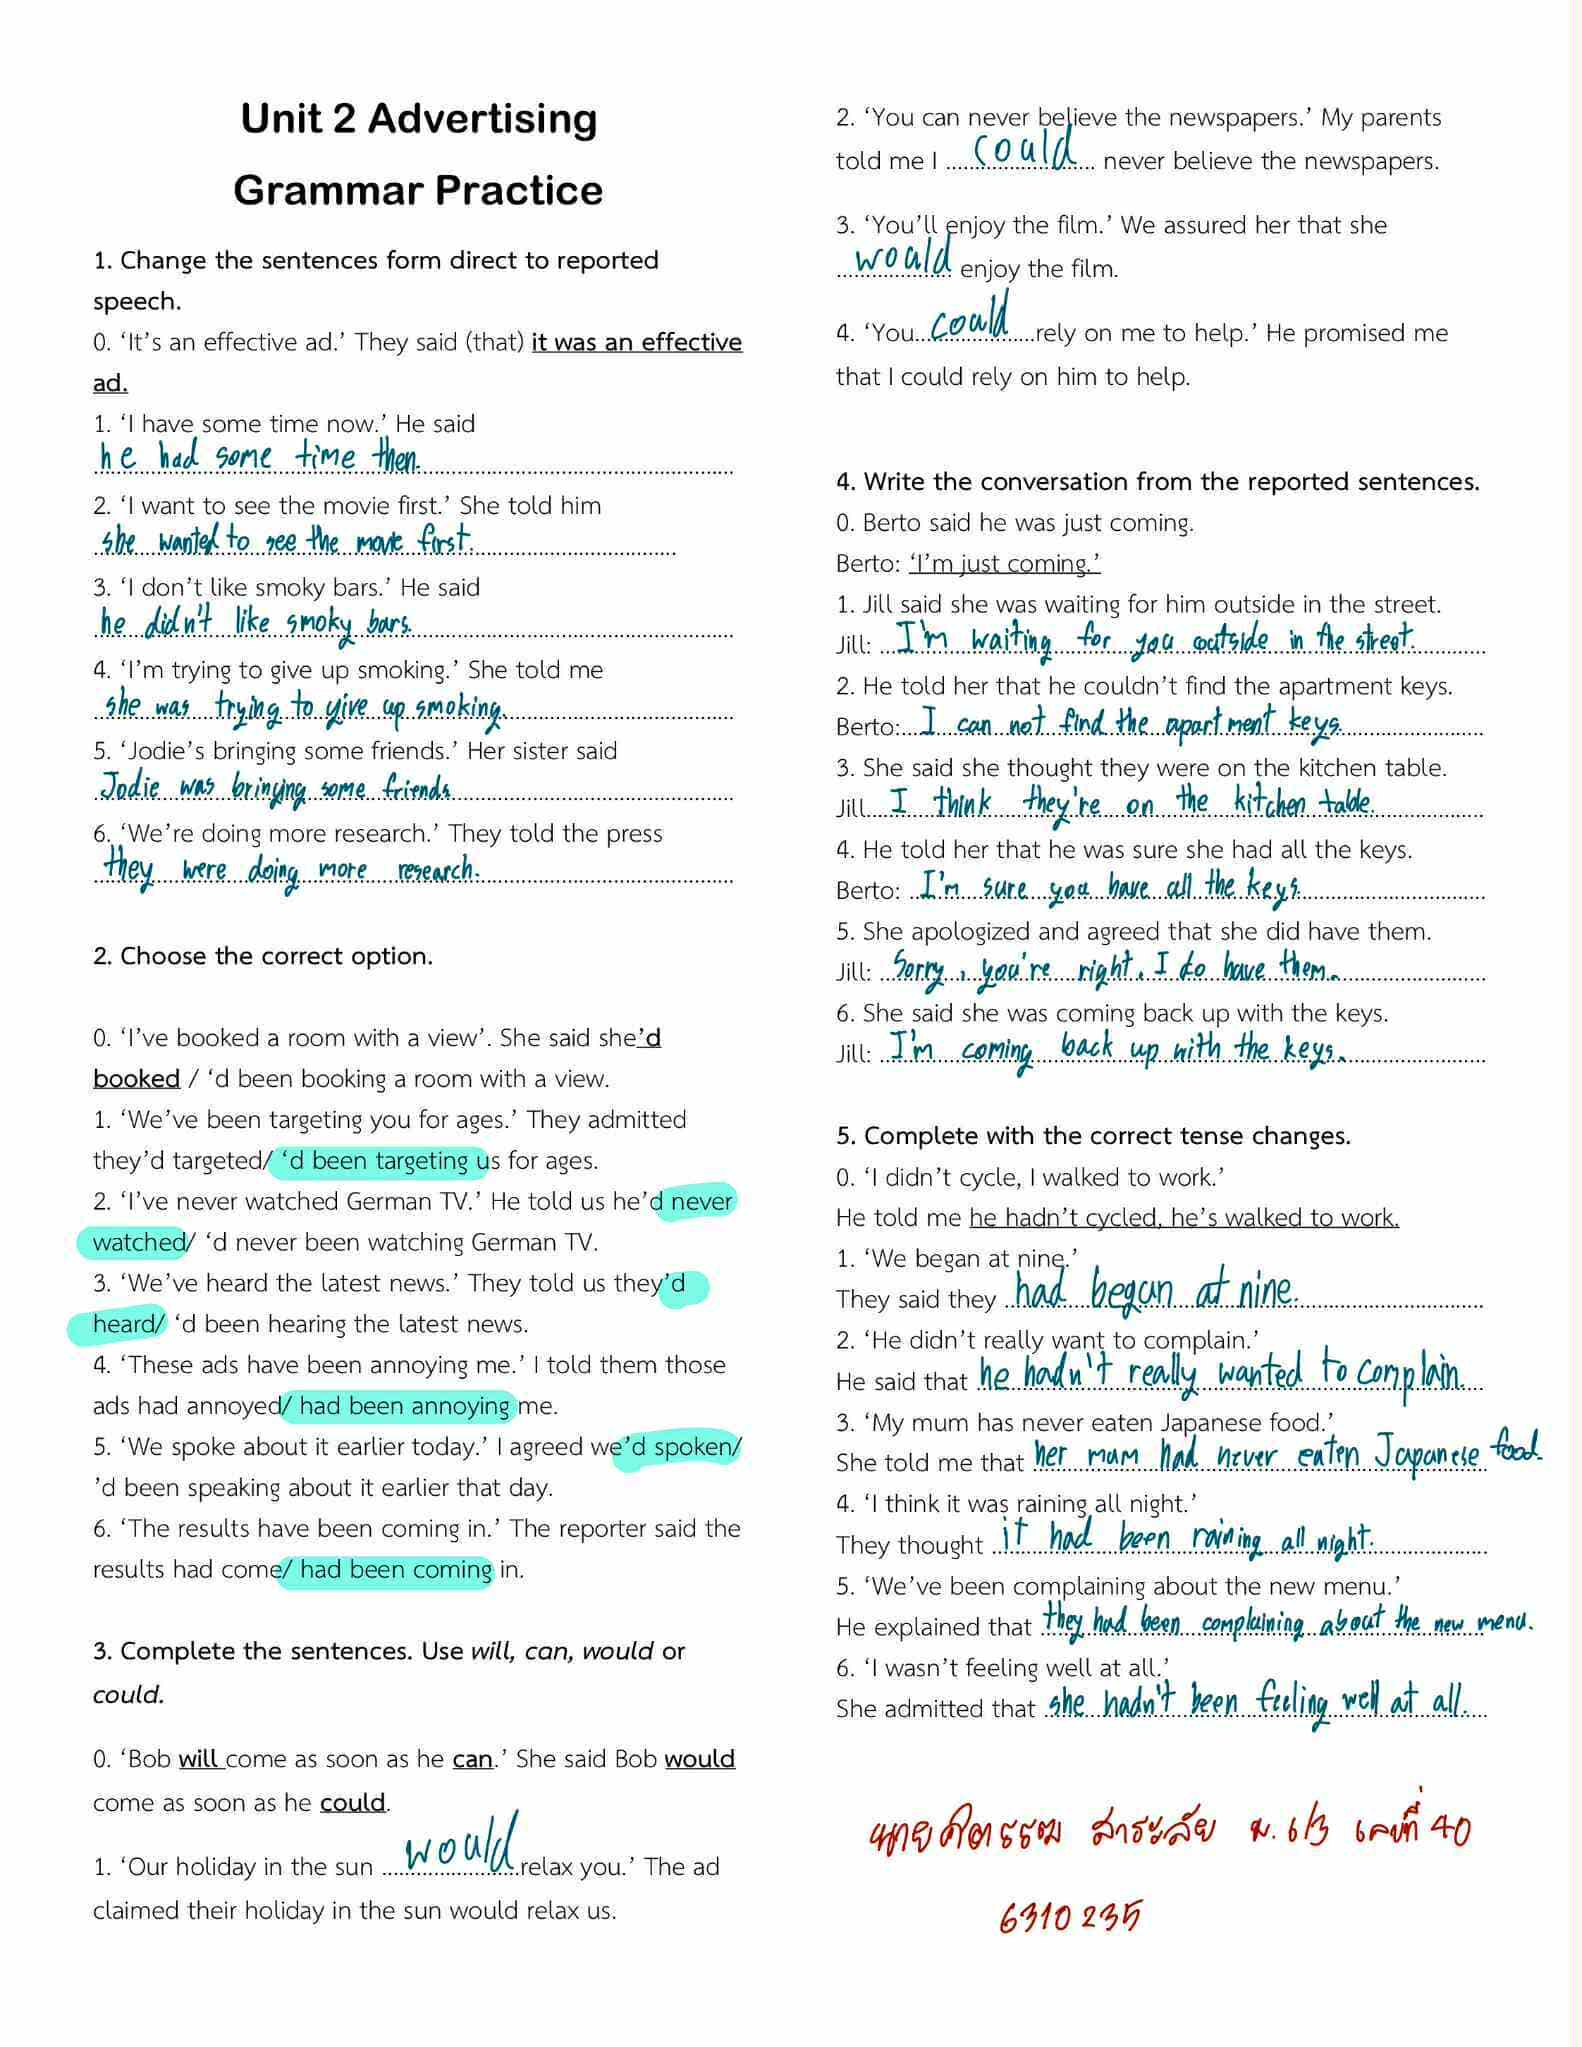 Unit 2 Advertising
Grammar Practice
1. Change the sentences form direct to reported
speech.
0. ‘It’s an effective ad.’ They said (that) it was an effective
ad.
1. ‘I have some time now.’ He said
he had some time then.
2. ‘I want to see the movie first.’ She told him
she wanted to see the movie first.
3. ‘I don’t like smoky bars.’ He said
he didn't like smoky bars.
4. ‘I’m trying to give up smoking.’ She told me
she was trying to give up smoking.
5. ‘Jodie’s bringing some friends.’ Her sister said
Jodie was bringing some friends
6. ‘We’re doing more research.’ They told the press
they were doing more research.
2. Choose the correct option.
0. ‘I’ve booked a room with a view’. She said she’d
booked / ‘d been booking a room with a view.
1. ‘We’ve been targeting you for ages.’ They admitted
they’d targeted/ ‘d been targeting us for ages.
2. ‘I’ve never watched German TV.’ He told us he’d never
watched/ ‘d never been watching German TV.
3. ‘We’ve heard the latest news.’ They told us they’d
heard/ ‘d been hearing the latest news.
4. ‘These ads have been annoying me.’ I told them those
ads had annoyed/ had been annoying me.
5. ‘We spoke about it earlier today.’ I agreed we’d spoken/
’d been speaking about it earlier that day.
6. ‘The results have been coming in.’ The reporter said the
results had come/ had been coming in.
3. Complete the sentences. Use will, can, would or
could.
0. ‘Bob will come as soon as he can.’ She said Bob would
come as soon as he could.
1. ‘Our holiday in the sun would relax you.’ The ad
claimed their holiday in the sun would relax us.
2. ‘You can never believe the newspapers.’ My parents
told me I could never believe the newspapers.
3. ‘You’ll enjoy the film.’ We assured her that she
would enjoy the film.
4. ‘You could rely on me to help.’ He promised me
that I could rely on him to help.
4. Write the conversation from the reported sentences.
0. Berto said he was just coming.
Berto: ‘I’m just coming.’
1. Jill said she was waiting for him outside in the street.
Jill: I'm waiting for you outside in the street.
2. He told her that he couldn’t find the apartment keys.
Berto: I can not find the apartment keys.
3. She said she thought they were on the kitchen table.
Jill I think they're on the kitchen table.
4. He told her that he was sure she had all the keys.
Berto: I'm sure you have all the keys.
5. She apologized and agreed that she did have them.
Jill: Sorry, you're right. I do have them.
6. She said she was coming back up with the keys.
Jill: I'm coming back up with the keys.
5. Complete with the correct tense changes.
0. ‘I didn’t cycle, I walked to work.’
He told me he hadn’t cycled, he’s walked to work.
1. ‘We began at nine.’
They said they had began at nine.
2. ‘He didn’t really want to complain.’
He said that he hadn't really wanted to complain.
3. ‘My mum has never eaten Japanese food.’
She told me that her mum had never eaten Japanese food.
4. ‘I think it was raining all night.’
They thought it had been raining all night.
5. ‘We’ve been complaining about the new menu.’
He explained that they had been complaining about the new menu.
6. ‘I wasn’t feeling well at all.’
She admitted that she hadn't been feeling well at all.
นาย สาระลัย ม. 6/3 เลขที่ 40
6310235